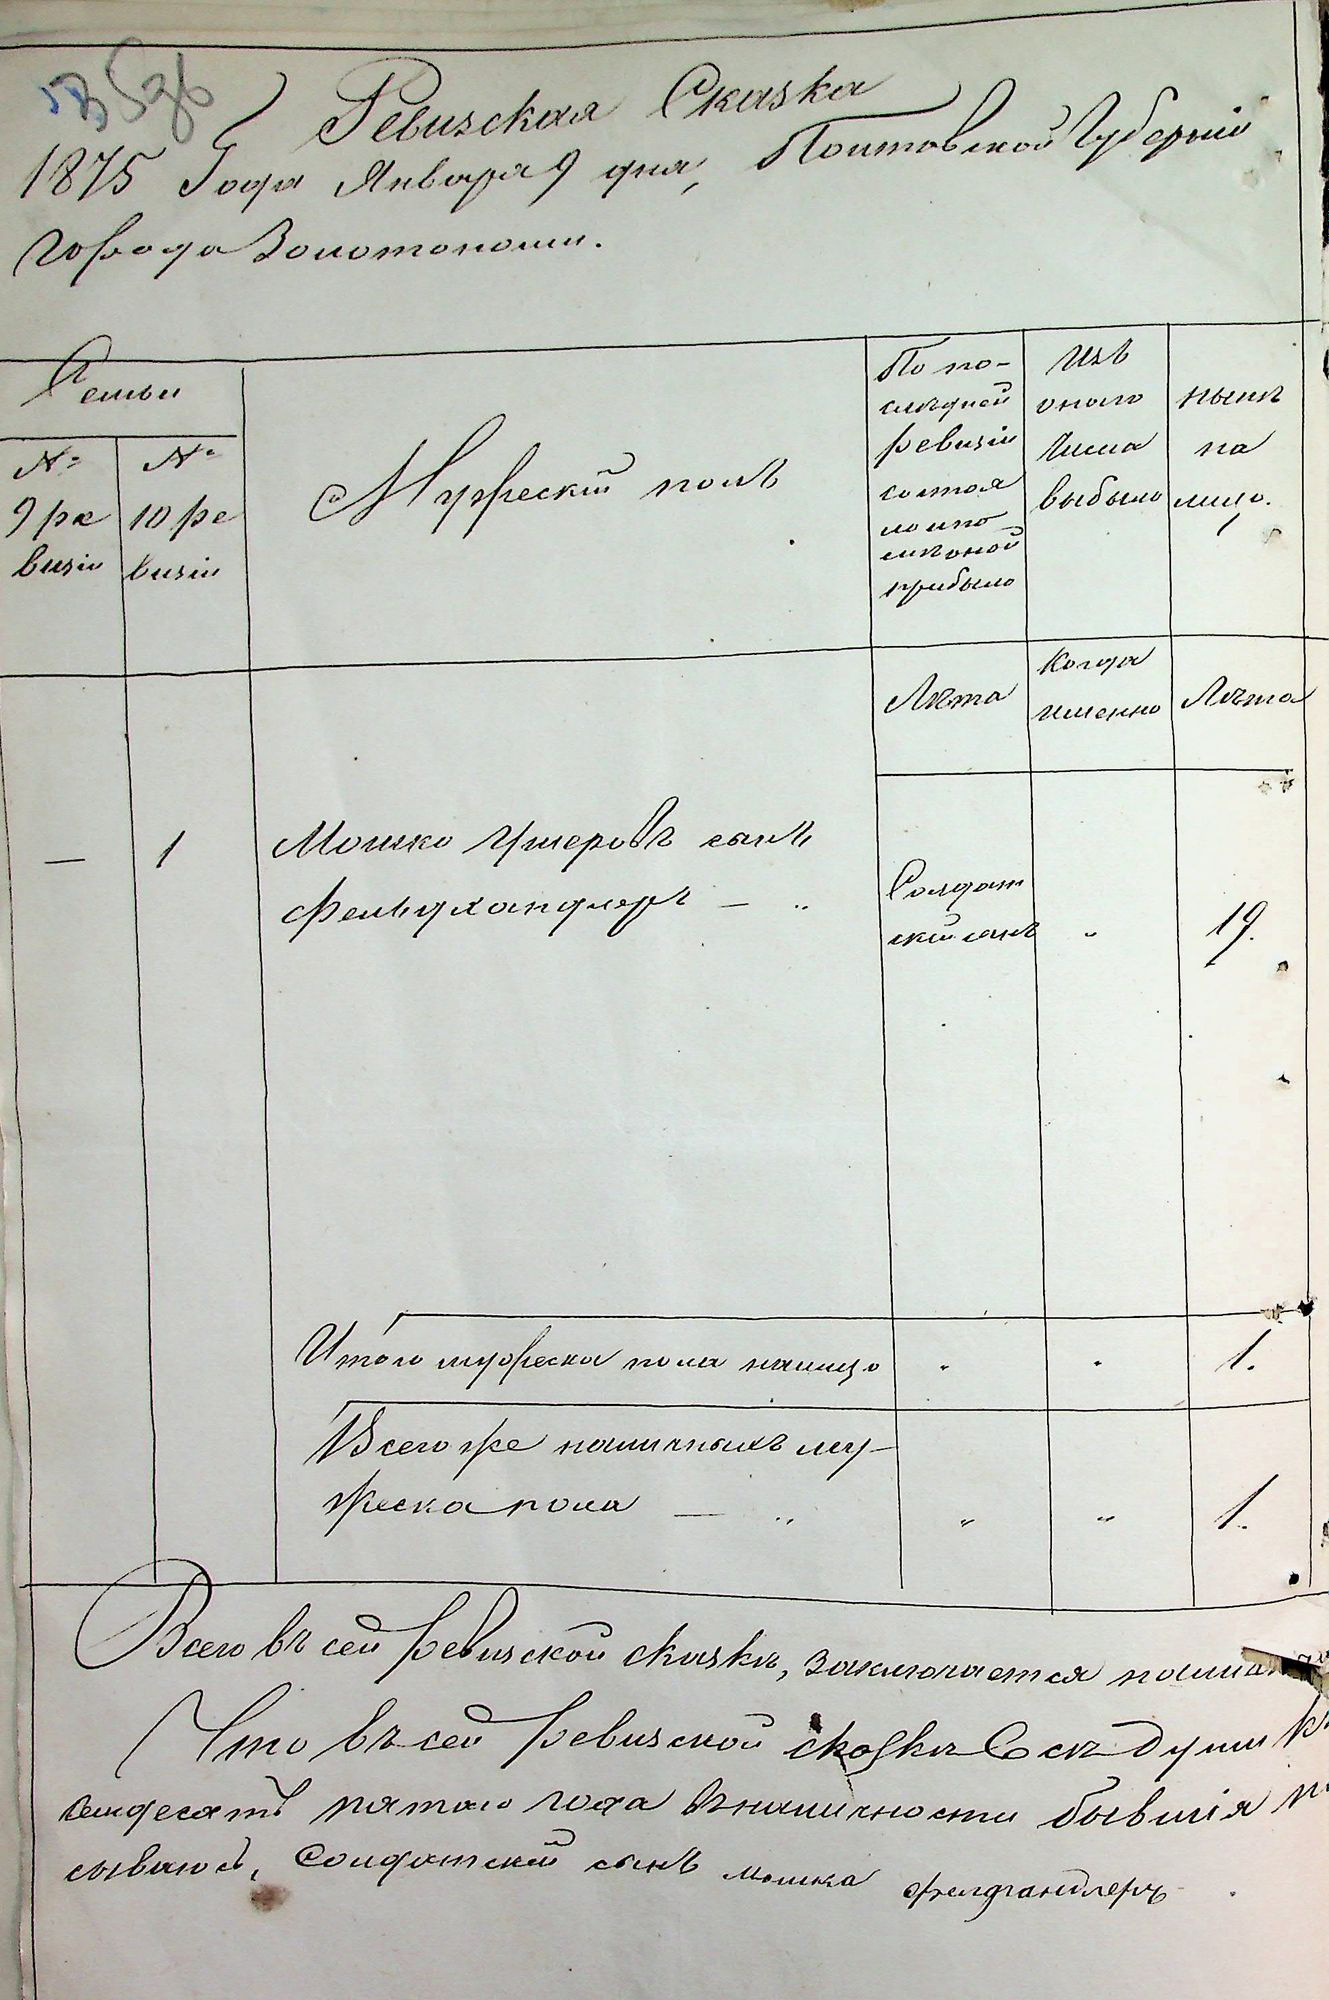 Ревизская Сказка
1875 Года Января 9 дня, Полтавской Губерніи
города Золотоноши.
Семьи
№ 9 ре
визіи
№ 10 ре
визіи
Мужескій полъ
По по-
слѣдней
ревизіи
состоя
ло и по
слѣ оной
прибыло
Изъ
оного
числа
выбыло
нынѣ
на
лицо.
Лѣта
Когда
именно
Лѣта
— 1 Мошко Ушеровъ сынъ
Фельдхандлеръ — „
Солдат
скій сынъ „ 19.
Итого мужеска пола налицо „ „ 1.
Всего же наличныхъ му-
жеска пола — „ „ „ 1.
Всего въ сей ревизской сказкѣ, заключается налич
Что въ сей ревизской сказкѣ всѣ души
семдесятъ пятаго года в наличности бывшія
сываюсь, Солдатскій сынъ мошка фелдгандлеръ